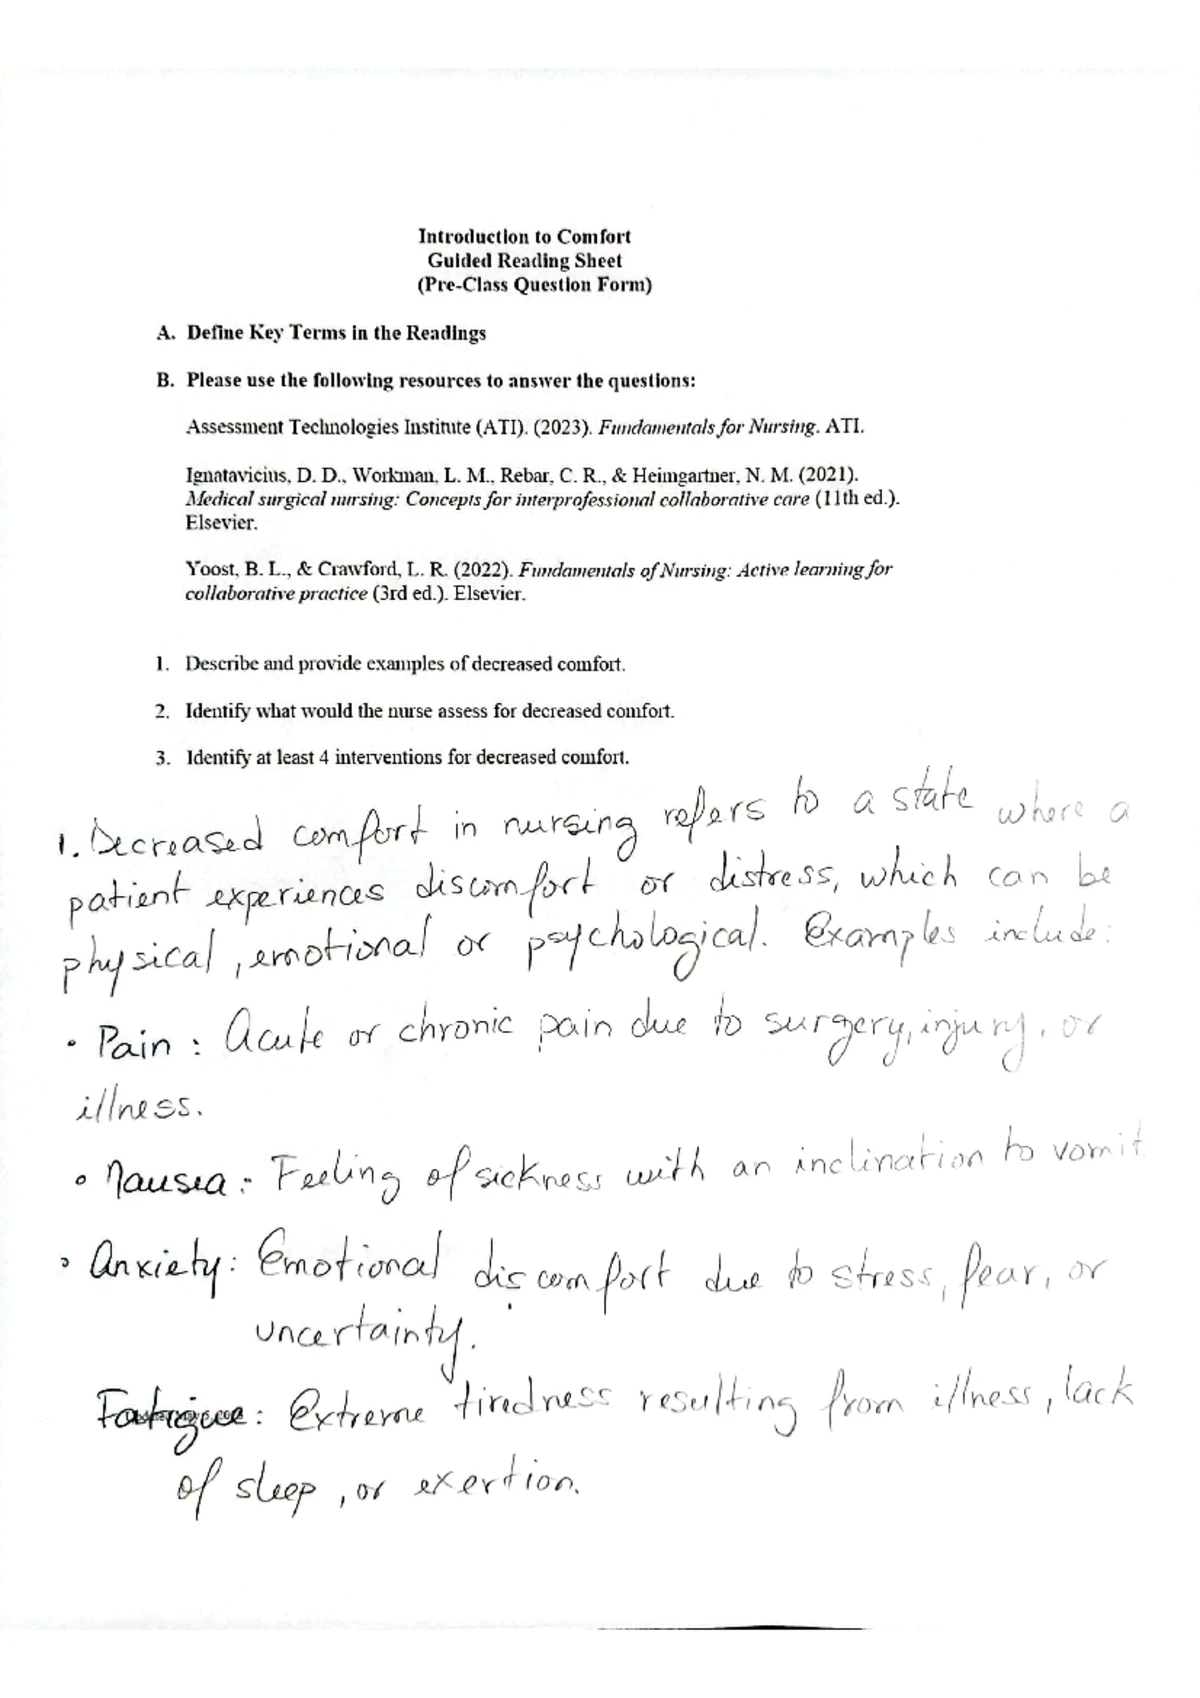 Introduction to Comfort
Guided Reading Sheet
(Pre-Class Question Form)
A. Define Key Terms in the Readings
B. Please use the following resources to answer the questions:
Assessment Technologies Institute (ATI). (2023). Fundamentals for Nursing. ATI.
Ignatavicius, D. D., Workman, L. M., Rebar, C. R., & Heimgartner, N. M. (2021).
Medical surgical nursing: Concepts for interprofessional collaborative care (11th ed.).
Elsevier.
Yoost, B. L., & Crawford, L. R. (2022). Fundamentals of Nursing: Active learning for
collaborative practice (3rd ed.). Elsevier.
1. Describe and provide examples of decreased comfort.
2. Identify what would the nurse assess for decreased comfort.
3. Identify at least 4 interventions for decreased comfort.
1. Decreased comfort in nursing refers to a state where a
patient experiences discomfort or distress, which can be
physical, emotional or psychological. Examples include:
• Pain: Acute or chronic pain due to surgery, injury, or
illness.
• Nausea: Feeling of sickness with an inclination to vomit
• Anxiety: Emotional discomfort due to stress, fear, or
uncertainty.
Fatigue: Extreme tiredness resulting from illness, lack
of sleep, or exertion.